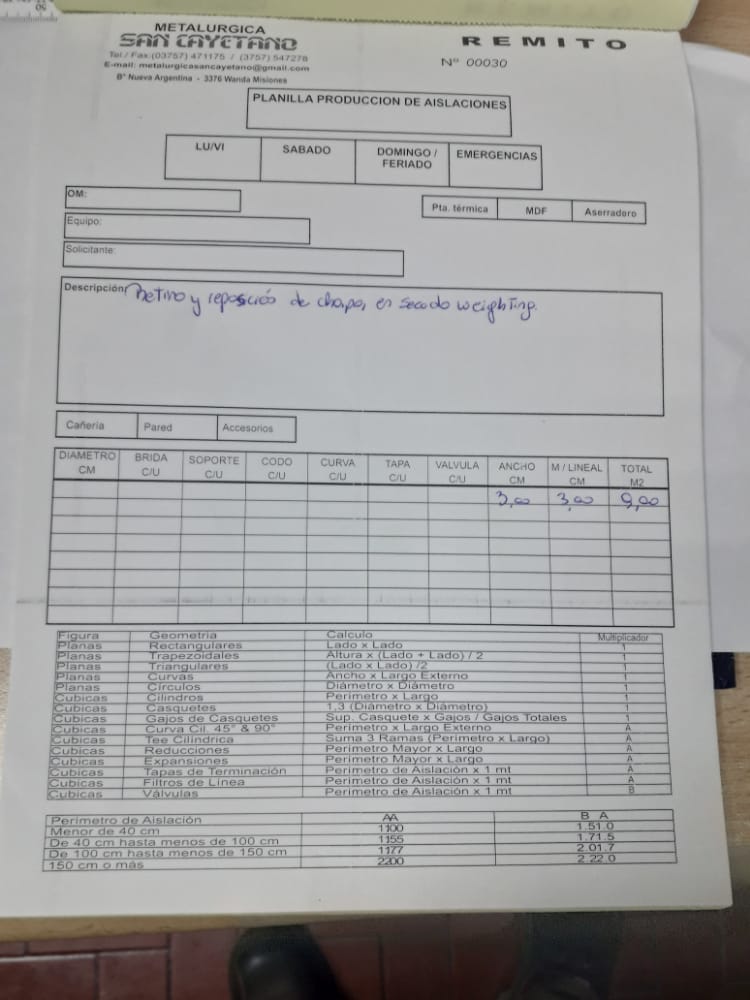 METALURGICA
SAN CAYETANO
Tel / Fax:(03757) 471175 / (3757) 547278
E-mail: metalurgicasancayetano@gmail.com
B° Nueva Argentina - 3376 Wanda Misiones
REMITO
N° 00030
PLANILLA PRODUCCION DE AISLACIONES
LU/VI SABADO DOMINGO / FERIADO EMERGENCIAS
OM:
Pta. térmica MDF Aserradero
Equipo:
Solicitante:
Descripción: Retiro y reposició de chapa, en secado weighting.
Cañería Pared Accesorios
DIAMETRO CM BRIDA C/U SOPORTE C/U CODO C/U CURVA C/U TAPA C/U VALVULA C/U ANCHO CM M / LINEAL CM TOTAL M2
3,00 3,00 9,00
Figura Geometria Calculo Multiplicador
Planas Rectangulares Lado x Lado 1
Planas Trapezoidales Altura x (Lado + Lado) / 2 1
Planas Triangulares (Lado x Lado) /2 1
Planas Curvas Ancho x Largo Externo 1
Planas Círculos Diámetro x Diámetro 1
Cubicas Cilindros Perimetro x Largo 1
Cubicas Casquetes 1,3 (Diámetro x Diámetro) 1
Cubicas Gajos de Casquetes Sup. Casquete x Gajos / Gajos Totales 1
Cubicas Curva Cil. 45° & 90° Perimetro x Largo Externo A
Cubicas Tee Cilindrica Suma 3 Ramas (Perimetro x Largo) A
Cubicas Reducciones Perimetro Mayor x Largo A
Cubicas Expansiones Perimetro Mayor x Largo A
Cubicas Tapas de Terminación Perimetro de Aislación x 1 mt A
Cubicas Filtros de Línea Perimetro de Aislación x 1 mt A
Cubicas Válvulas Perimetro de Aislación x 1 mt B
Perimetro de Aislación AA B A
Menor de 40 cm 1100 1.51.0
De 40 cm hasta menos de 100 cm 1155 1.71.5
De 100 cm hasta menos de 150 cm 1177 2.01.7
150 cm o más 2200 2.22.0